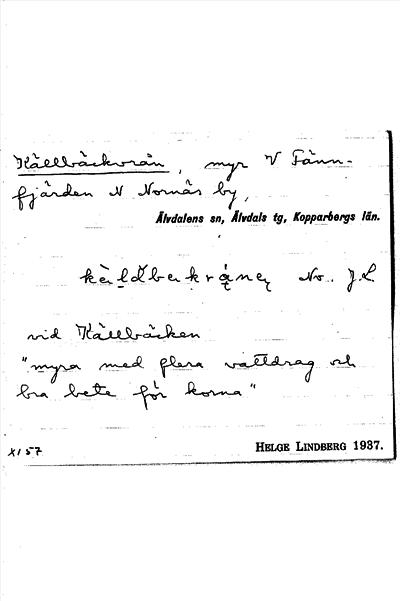 Källbäckvrån, myr V Fänn-
fjärden N Nornäs by,
Älvdalens sn, Älvdals tg, Kopparbergs län.
No. J.L
vid Källbäcken
"myra med flera vattdrag och
bra bete för korna"
XI 57 HELGE LINDBERG 1937.